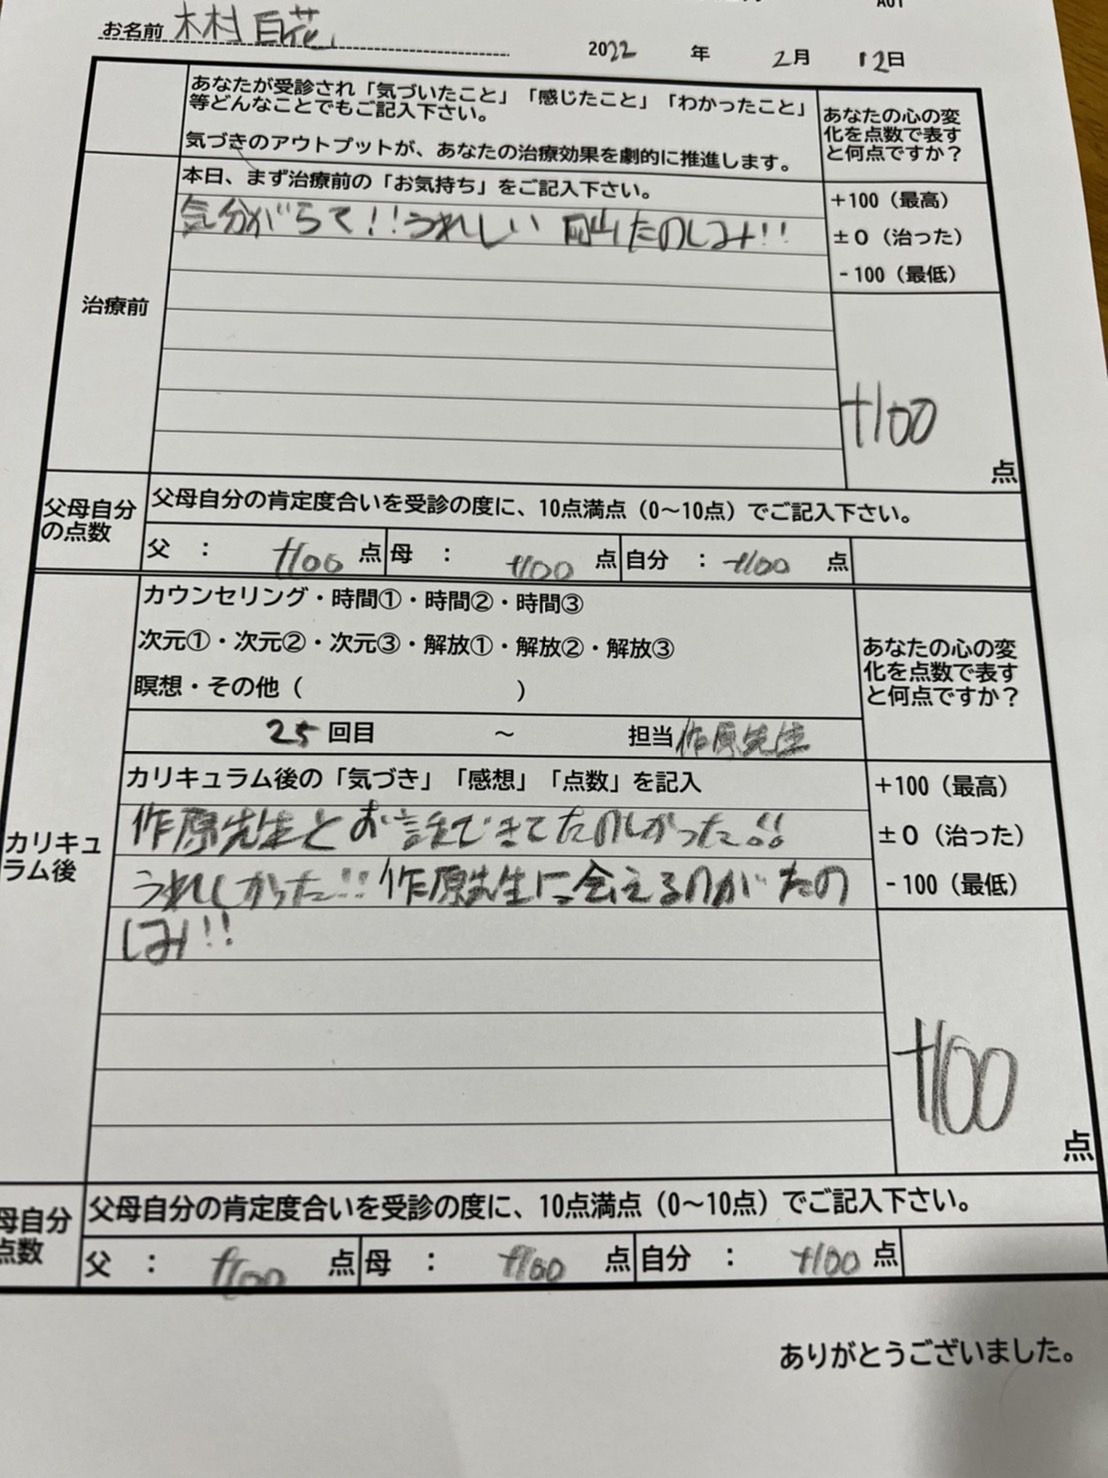 A01
お名前 木村百花
2022 年 2月 12日
あなたが受診され「気づいたこと」「感じたこと」「わかったこと」
等どんなことでもご記入下さい。
気づきのアウトプットが、あなたの治療効果を劇的に推進します。
あなたの心の変
化を点数で表す
と何点ですか？
治療前
本日、まず治療前の「お気持ち」をご記入下さい。
気分がらて!!うれしい たのしみ!!
+100（最高）
±0（治った）
-100（最低）
+100
点
父母自分
の点数
父母自分の肯定度合いを受診の度に、10点満点（0～10点）でご記入下さい。
父 ： +100 点 母 ： +100 点 自分 ： +100 点
カウンセリング・時間①・時間②・時間③
次元①・次元②・次元③・解放①・解放②・解放③
瞑想・その他（ ）
あなたの心の変
化を点数で表す
と何点ですか？
25回目 ～ 担当 作原先生
カリキュ
ラム後
カリキュラム後の「気づき」「感想」「点数」を記入
作原先生とお話できてたのしかった!!
うれしかった!!作原先生に会えるのがたの
しみ!!
+100（最高）
±0（治った）
-100（最低）
+100
点
母自分
点数
父母自分の肯定度合いを受診の度に、10点満点（0～10点）でご記入下さい。
父 ： +100 点 母 ： +100 点 自分 ： +100 点
ありがとうございました。